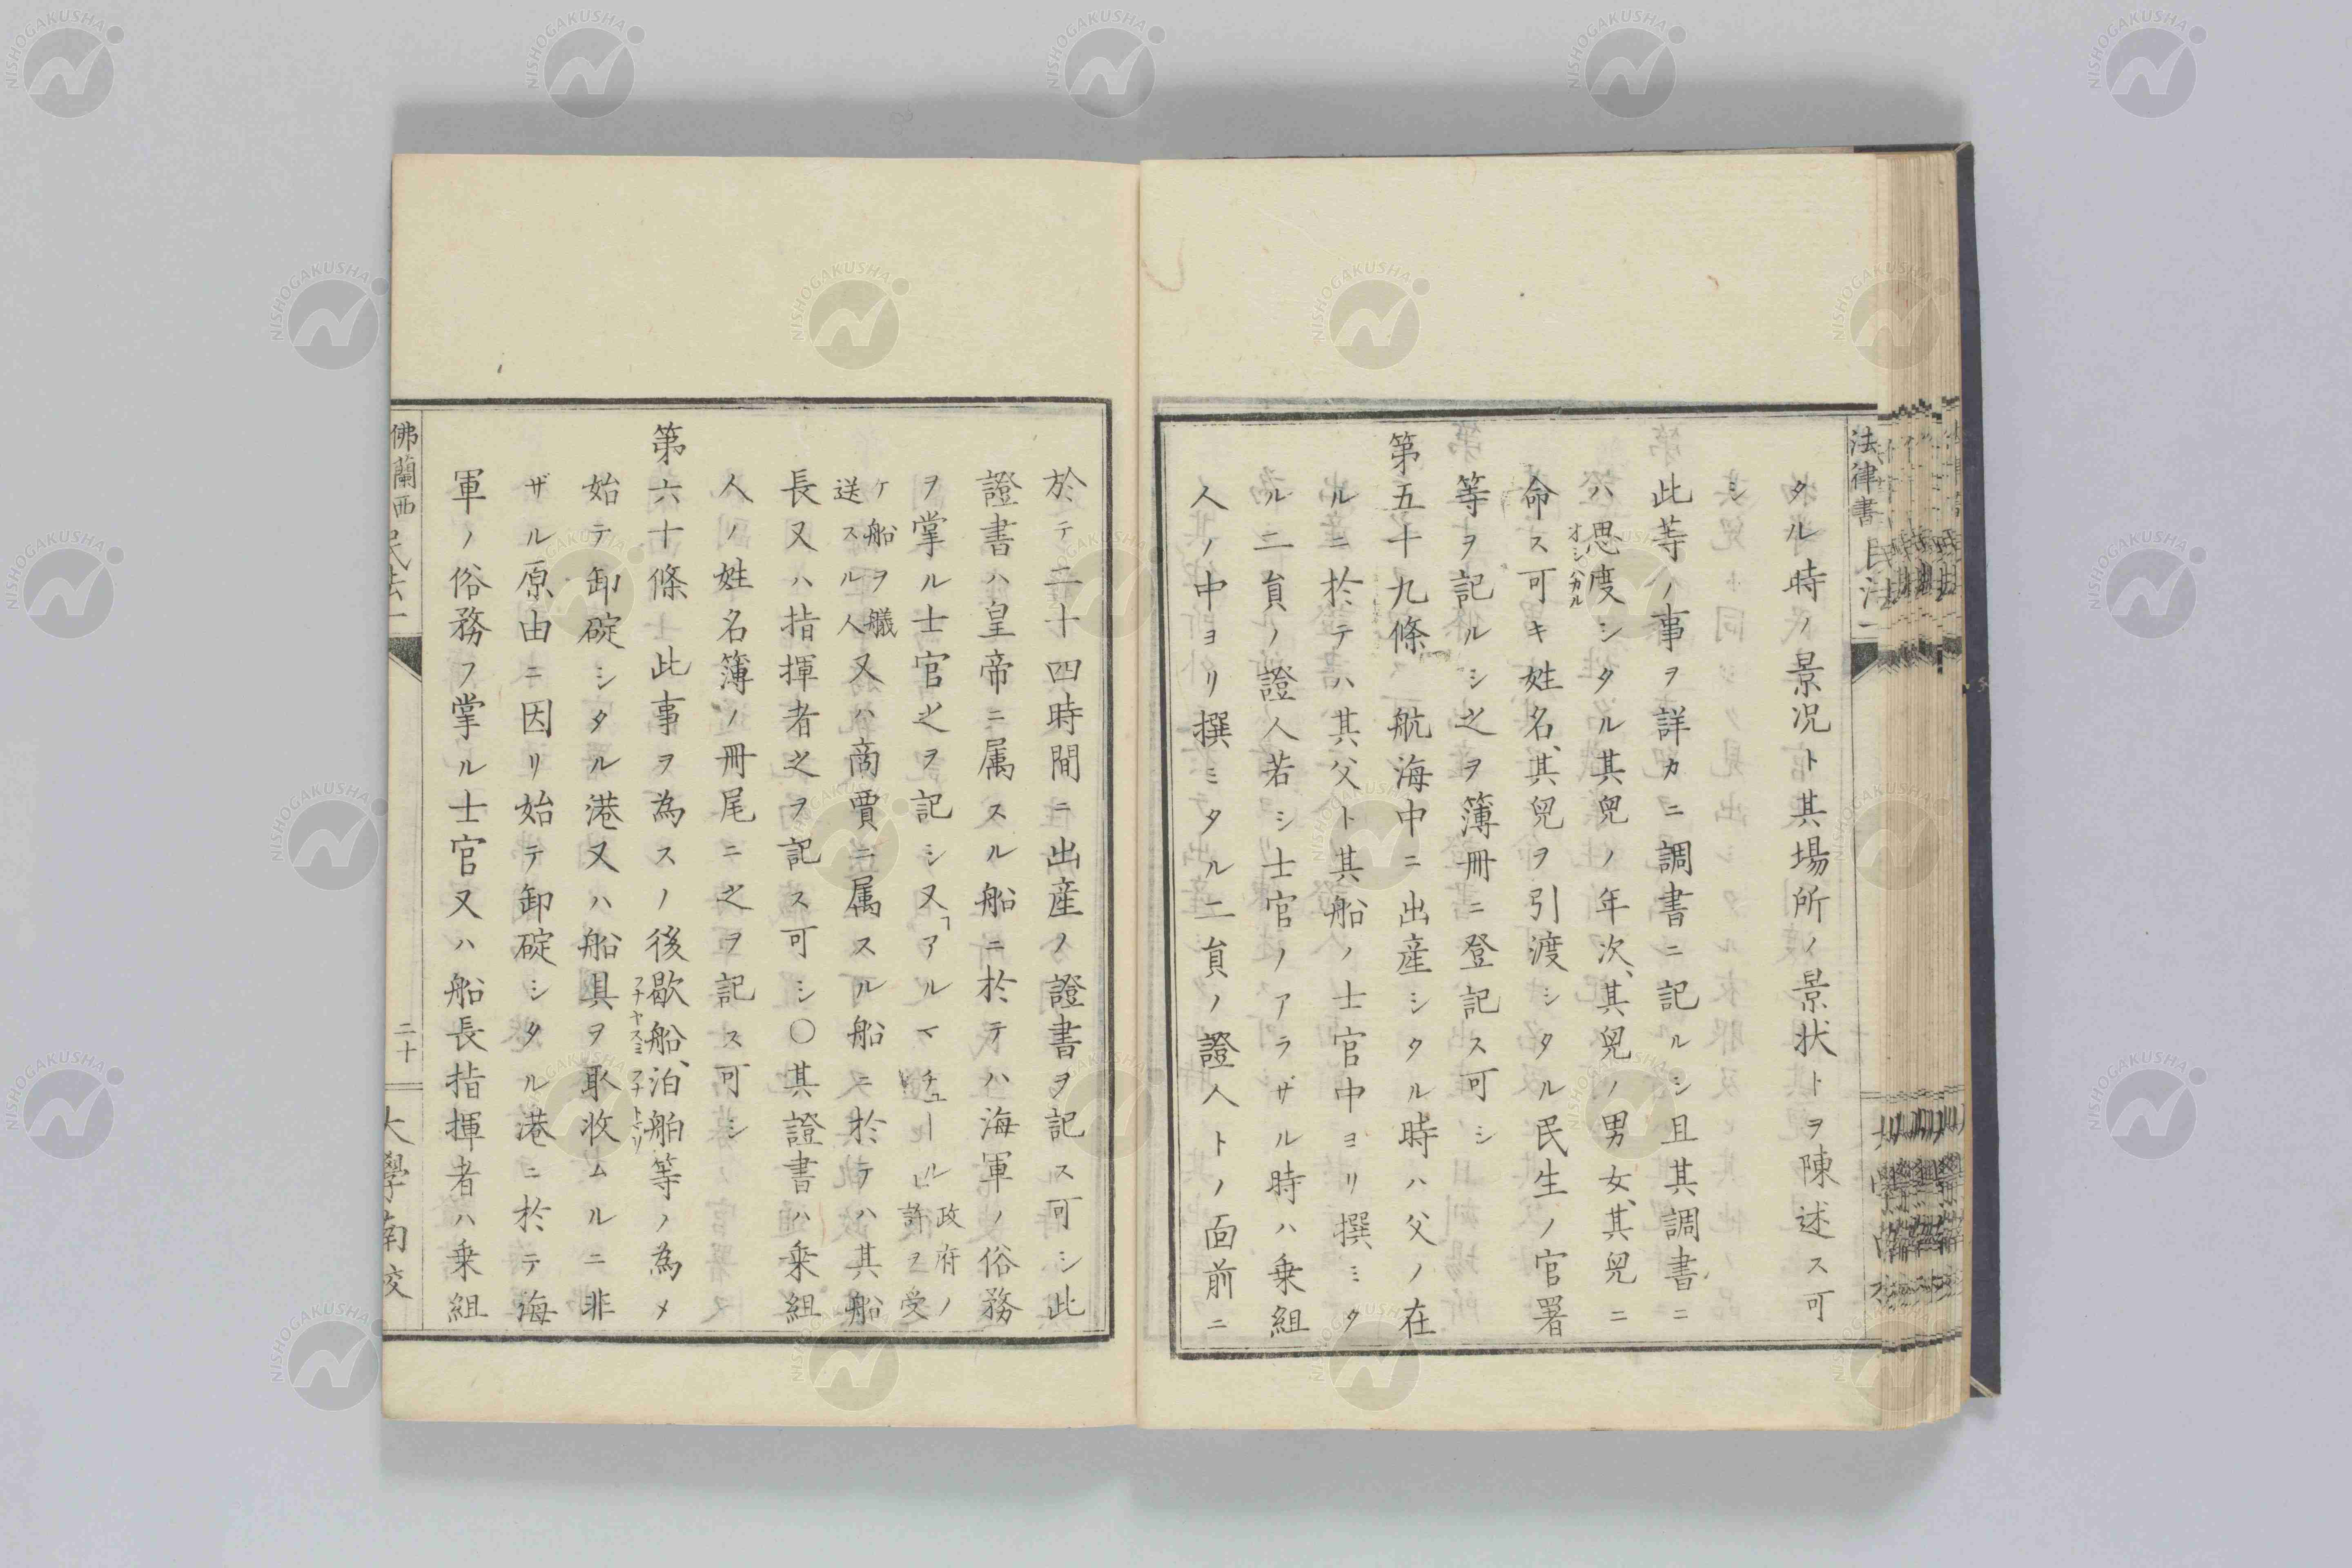 法律書 民法一
タル時ノ景况ト其場所ノ景状トヲ陳述ス可
シ
此等ノ事ヲ詳カニ調書ニ記ルシ且其調書ニ
ハ思度シタル其兒ノ年次、其兒ノ男女、其兒ニ
オシハカル
命ス可キ姓名、其兒ヲ引渡シタル民生ノ官署
等ヲ記ルシ之ヲ簿冊ニ登記ス可シ
第五十九條 航海中ニ出産シタル時ハ父ノ在
ルニ於テハ其父ト其船ノ士官中ヨリ撰ミタ
ル二員ノ證人若シ士官ノアラザル時ハ乗組
人ノ中ヨリ撰ミタル二員ノ證人トノ面前ニ
於テ二十四時間ニ出産ノ證書ヲ記ス可シ此
證書ハ皇帝ニ属スル船ニ於テハ海軍ノ俗務
ヲ掌ル士官之ヲ記シ又「アルマチュール」政府ノ許ヲ受
ケ船ヲ艤送スル人又ハ商賈ニ属スル船ニ於テハ其船
長又ハ指揮者之ヲ記ス可シ〇其證書ハ乗組
人ノ姓名簿ノ冊尾ニ之ヲ記ス可シ
第六十條 此事ヲ為スノ後歇船、泊舶等ノ為メ
フナヤスミ フナトマリ
始テ卸碇シタル港又ハ船具ヲ取收ムルニ非
ザル原由ニ因リ始テ卸碇シタル港ニ於テ海
軍ノ俗務フ掌ル士官又ハ船長指揮者ハ乗組
佛蘭西民法一 二十 大學南校
NISHOGAKUSHA